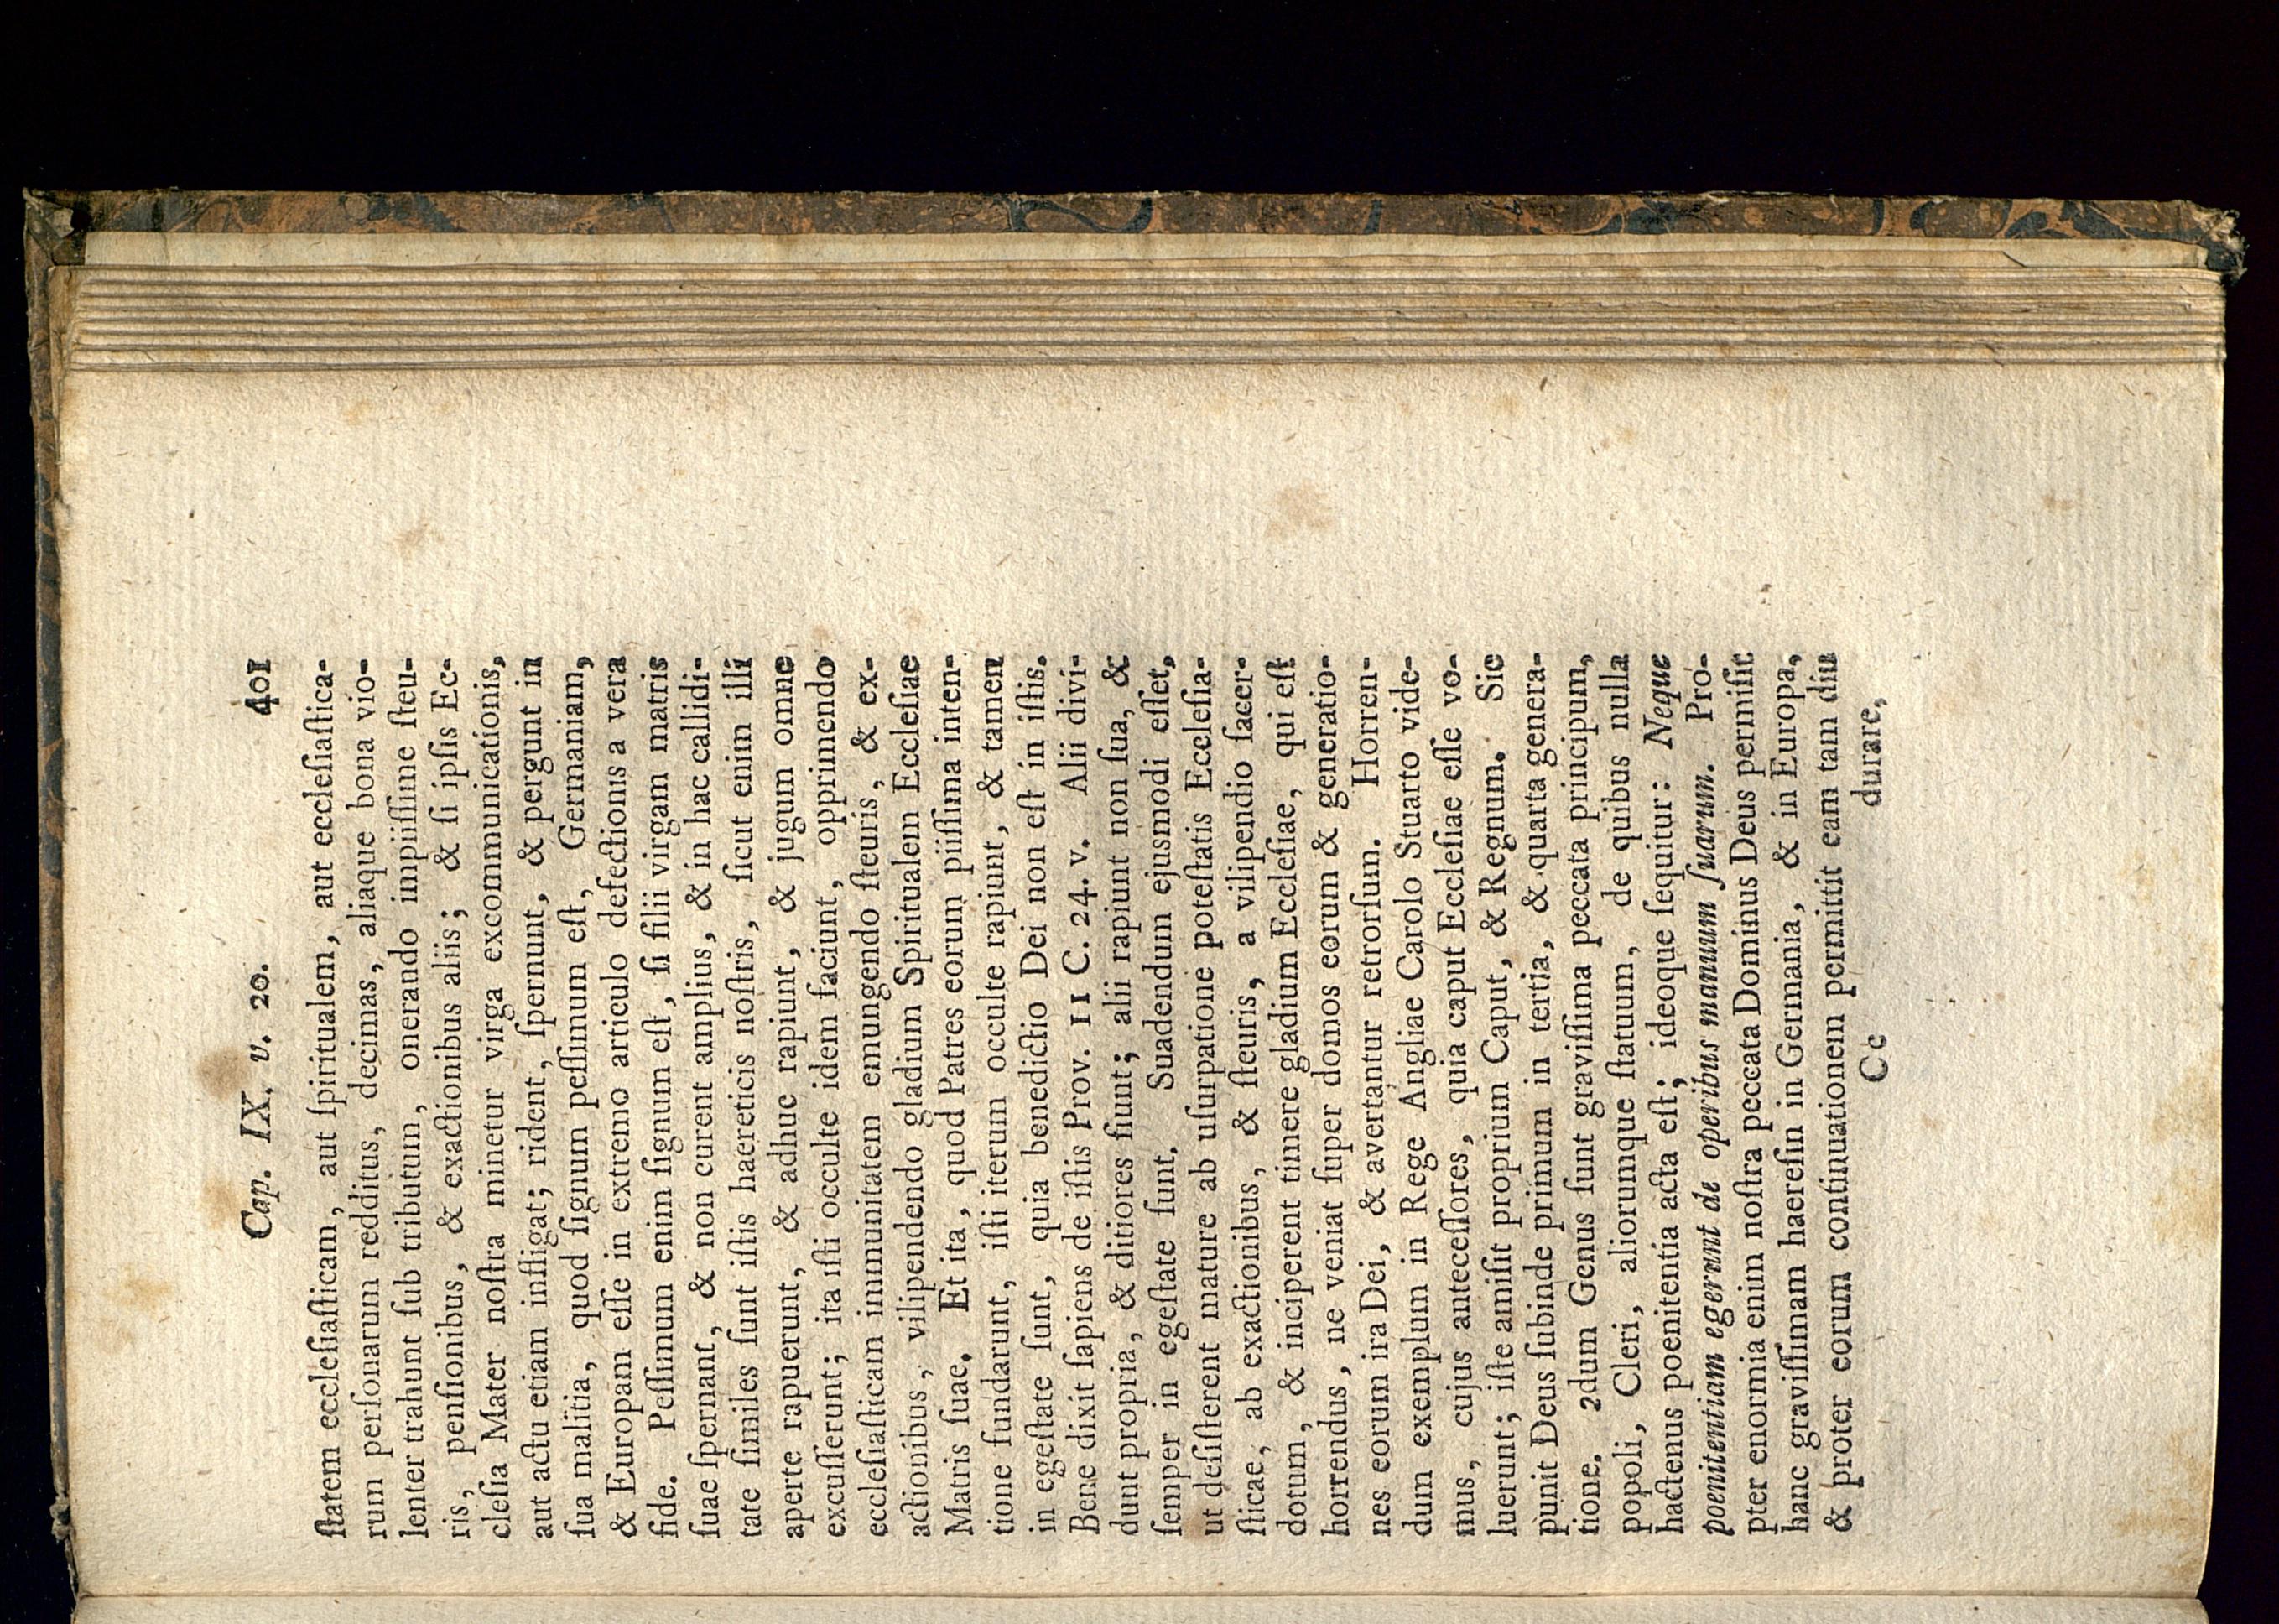 Cap. IX. v. 20. 401
ſtatem eccleſiaſticam, aut ſpiritualem, aut eccleſiaſtica-
rum perſonarum redditus, decimas, aliaque bona vio-
lenter trahunt ſub tributum, onerando impiiſſime ſteu-
ris, penſionibus, & exactionibus aliis; & ſi ipſis Ec-
cleſia Mater noſtra minetur virga excommunicationis,
aut actu etiam infligat; rident, ſpernunt, & pergunt in
ſua malitia, quod ſignum peſſimum eſt, Germaniam,
& Europam eſſe in extremo articulo defectionis a vera
fide. Peſſimum enim ſignum eſt, ſi filii virgam matris
ſuae ſpernant, & non curent amplius, & in hac callidi-
tate ſimiles ſunt iſtis haereticis noſtris, ſicut enim illi
aperte rapuerunt, & adhuc rapiunt, & jugum omne
excuſſerunt; ita iſti occulte idem faciunt, opprimendo
eccleſiaſticam immunitatem emungendo ſteuris, & ex-
actionibus, vilipendendo gladium Spiritualem Eccleſiae
Matris ſuae. Et ita, quod Patres eorum piiſſima inten-
tione fundarunt, iſti iterum occulte rapiunt, & tamen
in egeſtate ſunt, quia benedictio Dei non eſt in iſtis.
Bene dixit ſapiens de iſtis Prov. 11 C. 24. v. Alii divi-
dunt propria, & ditiores fiunt; alii rapiunt non ſua, &
ſemper in egeſtate ſunt. Suadendum ejusmodi eſſet,
ut deſiſterent mature ab uſurpatione poteſtatis Eccleſia-
ſticae, ab exactionibus, & ſteuris, a vilipendio ſacer-
dotum, & inciperent timere gladium Eccleſiae, qui eſt
horrendus, ne veniat ſuper domos eorum & generatio-
nes eorum ira Dei, & avertantur retrorſum. Horren-
dum exemplum in Rege Angliae Carolo Stuarto vide-
mus, cujus anteceſſores, quia caput Eccleſiae eſſe vo-
luerunt; iſte amiſit proprium Caput, & Regnum. Sic
punit Deus ſubinde primum in tertia, & quarta genera-
tione. 2dum Genus ſunt graviſſima peccata principum,
popoli, Cleri, aliorumque ſtatuum, de quibus nulla
hactenus poenitentia acta eſt; ideoque ſequitur: Neque
poenitentiam egerunt de operibus manuum ſuarum. Pro-
pter enormia enim noſtra peccata Dominus Deus permiſit
hanc graviſſimam haereſin in Germania, & in Europa,
& proter eorum continuationem permittit eam tam diu
Cc durare,